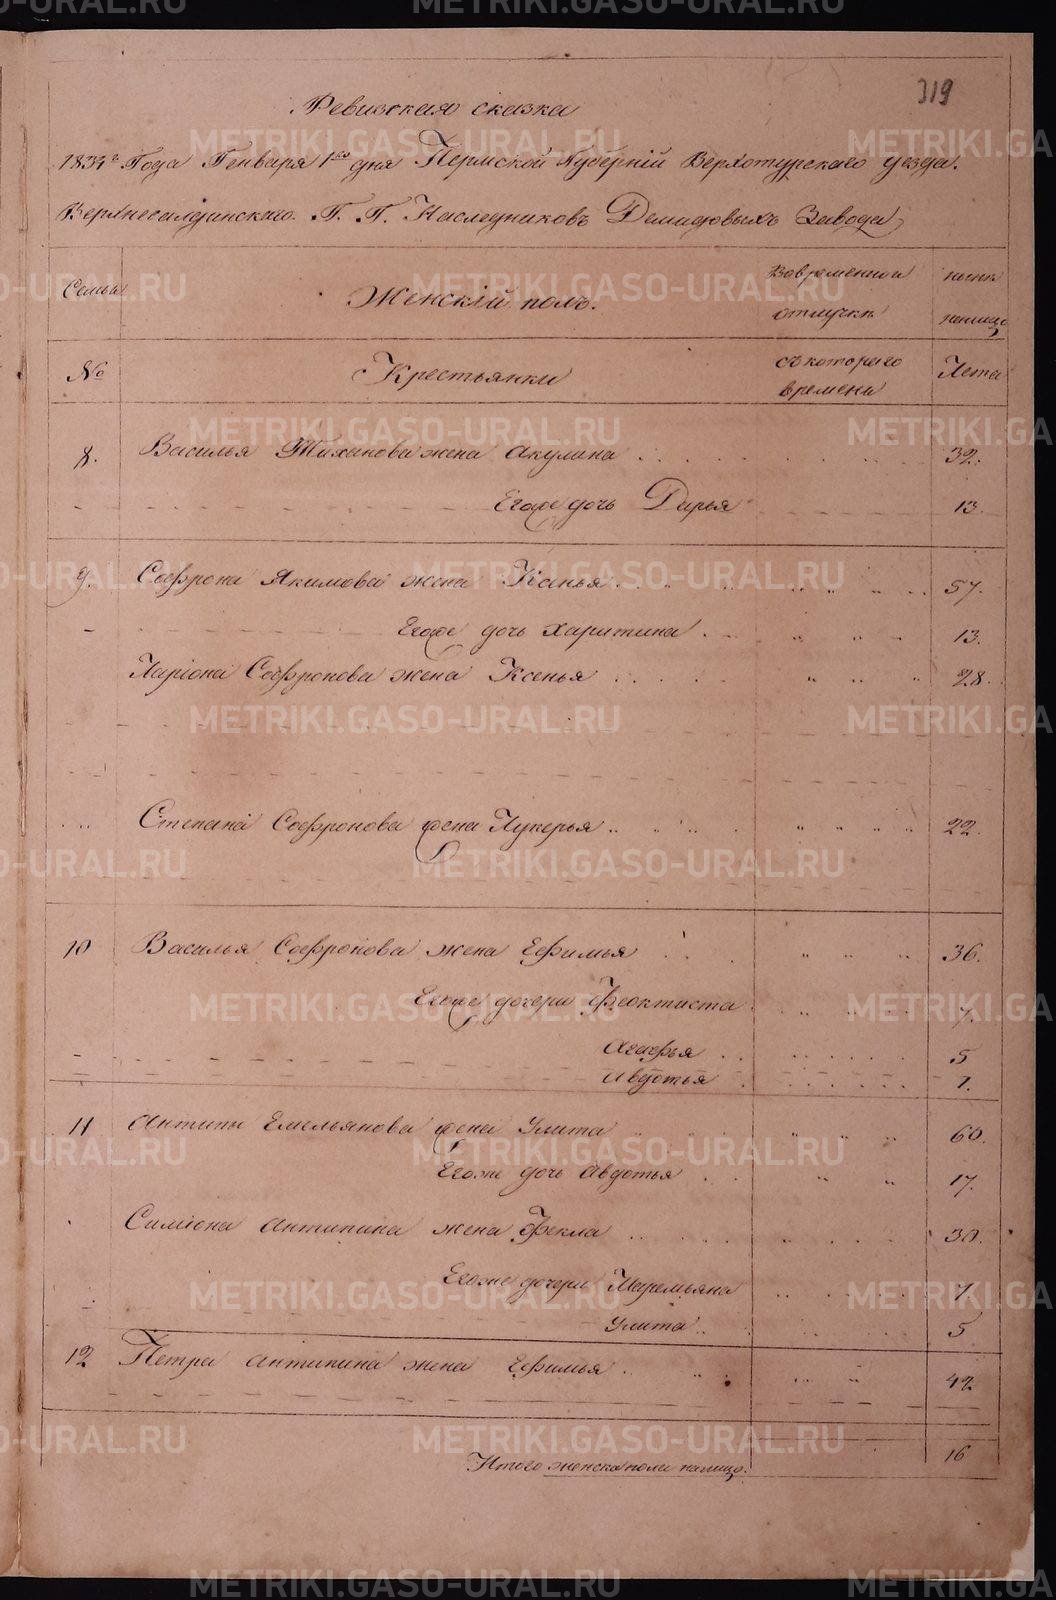 319
Ревизская сказка
1834го Года Генваря 1го дня Пермской Губерній Верхотурскаго уезда.
Верхнесалдинскаго Г. Г. Наследниковъ Демидовыхъ Завода
Семьи
Женскій полъ.
Вовременной отлучки
ныне налицо
№
Крестьянки
съ котораго времени
Лета
8. Василья Тиханова жена Акулина 32.
Егоже дочь Дарья 13.
9. Софрона Якимова жена Ксенья 57.
Егоже дочь Харитина 13.
Ларіона Софронова жена Ксенья 28.
Степана Софронова жена Лукерья 22.
10 Василья Софронова жена Ефимья 36.
Егоже дочери Феоктиста 7.
Агафья 5
Авдотья 1.
11 Антипы Емельянова жена Улита 60.
Егоже дочь Авдотья 17.
Симіона Антипина жена Фекла 30.
Егоже дочери 7
Улита 5
12 Петра Антипина жена Ефимья 42
Итого женска пола налицо. 16
METRIKI.GASO-URAL.RU